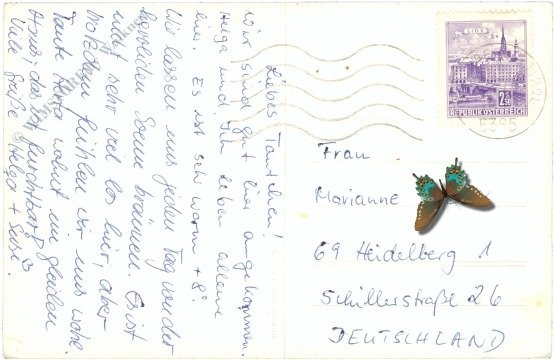 Liebes Tantchen!
Wir sind gut hier angekommen.
Helga und ich leben alleine
hier. Es ist sehr warm + 8°.
Wir lassen uns jeden Tag von der
Sonne bräunen. Es ist
nicht sehr viel los hier, aber
trotzdem fühlen wir uns wohl.
Tante wohnt im gleichen
Haus, das ist furchtbar!
Viele Grüße Helga + Suse.
LINZ
REPUBLIK ÖSTERREICH
6365
Frau
Marianne
69 Heidelberg 1
Schillerstraße 26
DEUTSCHLAND